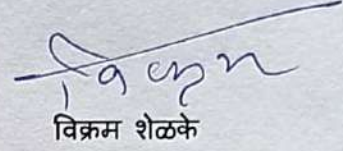 विक्रम
विक्रम शेळके